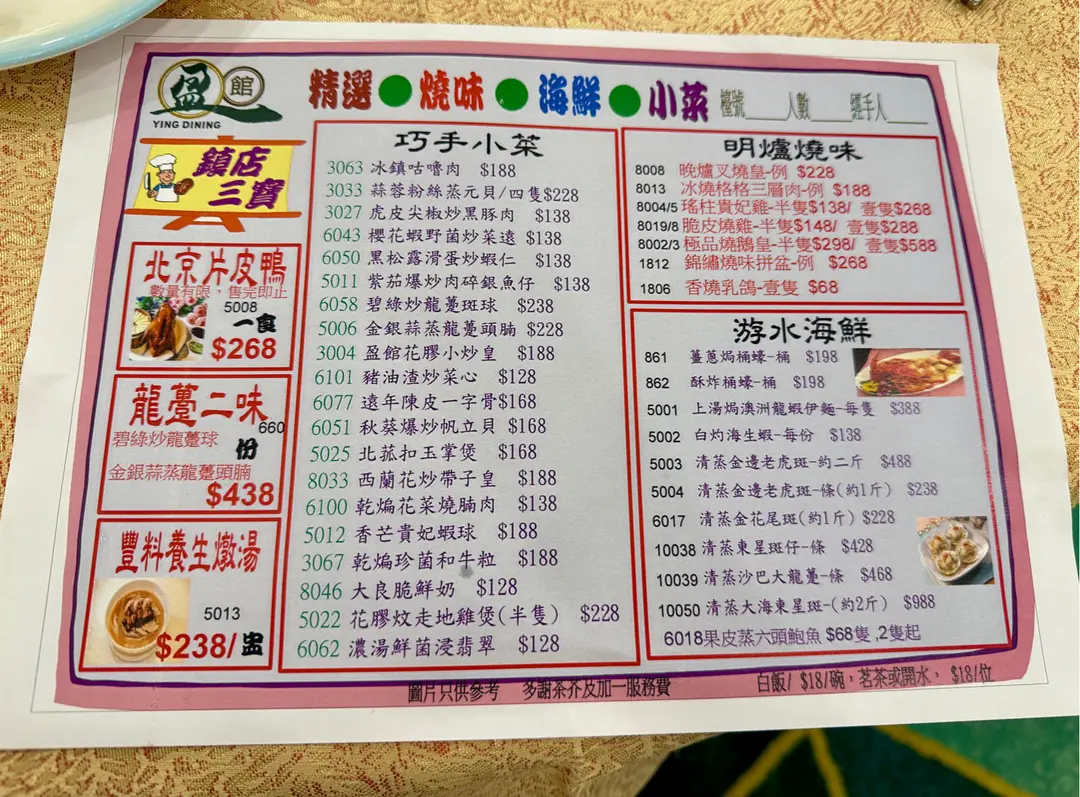 盈館
YING DINING
精選●燒味●海鮮●小菜 檯號____人數____經手人____
鎮店
三寶
北京片皮鴨
數量有限,售完即止
5008
一食
$268
龍躉二味
660
碧綠炒龍躉球
份
金銀蒜蒸龍躉頭腩
$438
豐料養生燉湯
5013
$238/盅
巧手小菜
3063 冰鎮咕嚕肉 $188
3033 蒜蓉粉絲蒸元貝/四隻$228
3027 虎皮尖椒炒黑豚肉 $138
6043 櫻花蝦野菌炒菜遠 $138
6050 黑松露滑蛋炒蝦仁 $138
5011 紫茄爆炒肉碎銀魚仔 $138
6058 碧綠炒龍躉斑球 $238
5006 金銀蒜蒸龍躉頭腩 $228
3004 盈館花膠小炒皇 $188
6101 豬油渣炒菜心 $128
6077 遠年陳皮一字骨$168
6051 秋葵爆炒帆立貝 $168
5025 北菰扣玉掌煲 $168
8033 西蘭花炒帶子皇 $188
6100 乾煸花菜燒腩肉 $138
5012 香芒貴妃蝦球 $188
3067 乾煸珍菌和牛粒 $188
8046 大良脆鮮奶 $128
5022 花膠炆走地雞煲(半隻) $228
6062 濃湯鮮菌浸翡翠 $128
明爐燒味
8008 晚爐叉燒皇-例 $228
8013 冰燒格格三層肉-例 $188
8004/5 瑤柱貴妃雞-半隻$138/ 壹隻$268
8019/8 脆皮燒雞-半隻$148/ 壹隻$288
8002/3 極品燒鵝皇-半隻$298/ 壹隻$588
1812 錦繡燒味拼盆-例 $268
1806 香燒乳鴿-壹隻 $68
游水海鮮
861 薑蔥焗桶蠔-桶 $198
862 酥炸桶蠔-桶 $198
5001 上湯焗澳洲龍蝦伊麵-每隻 $388
5002 白灼海生蝦-每份 $138
5003 清蒸金邊老虎斑-約二斤 $488
5004 清蒸金邊老虎斑-條(約1斤) $238
6017 清蒸金花尾斑(約1斤) $228
10038 清蒸東星斑仔-條 $428
10039 清蒸沙巴大龍躉-條 $468
10050 清蒸大海東星斑-(約2斤) $988
6018果皮蒸六頭鮑魚 $68隻 ,2隻起
圖片只供參考 多謝茶芥及加一服務費
白飯/ $18/碗,茗茶或開水, $18/位